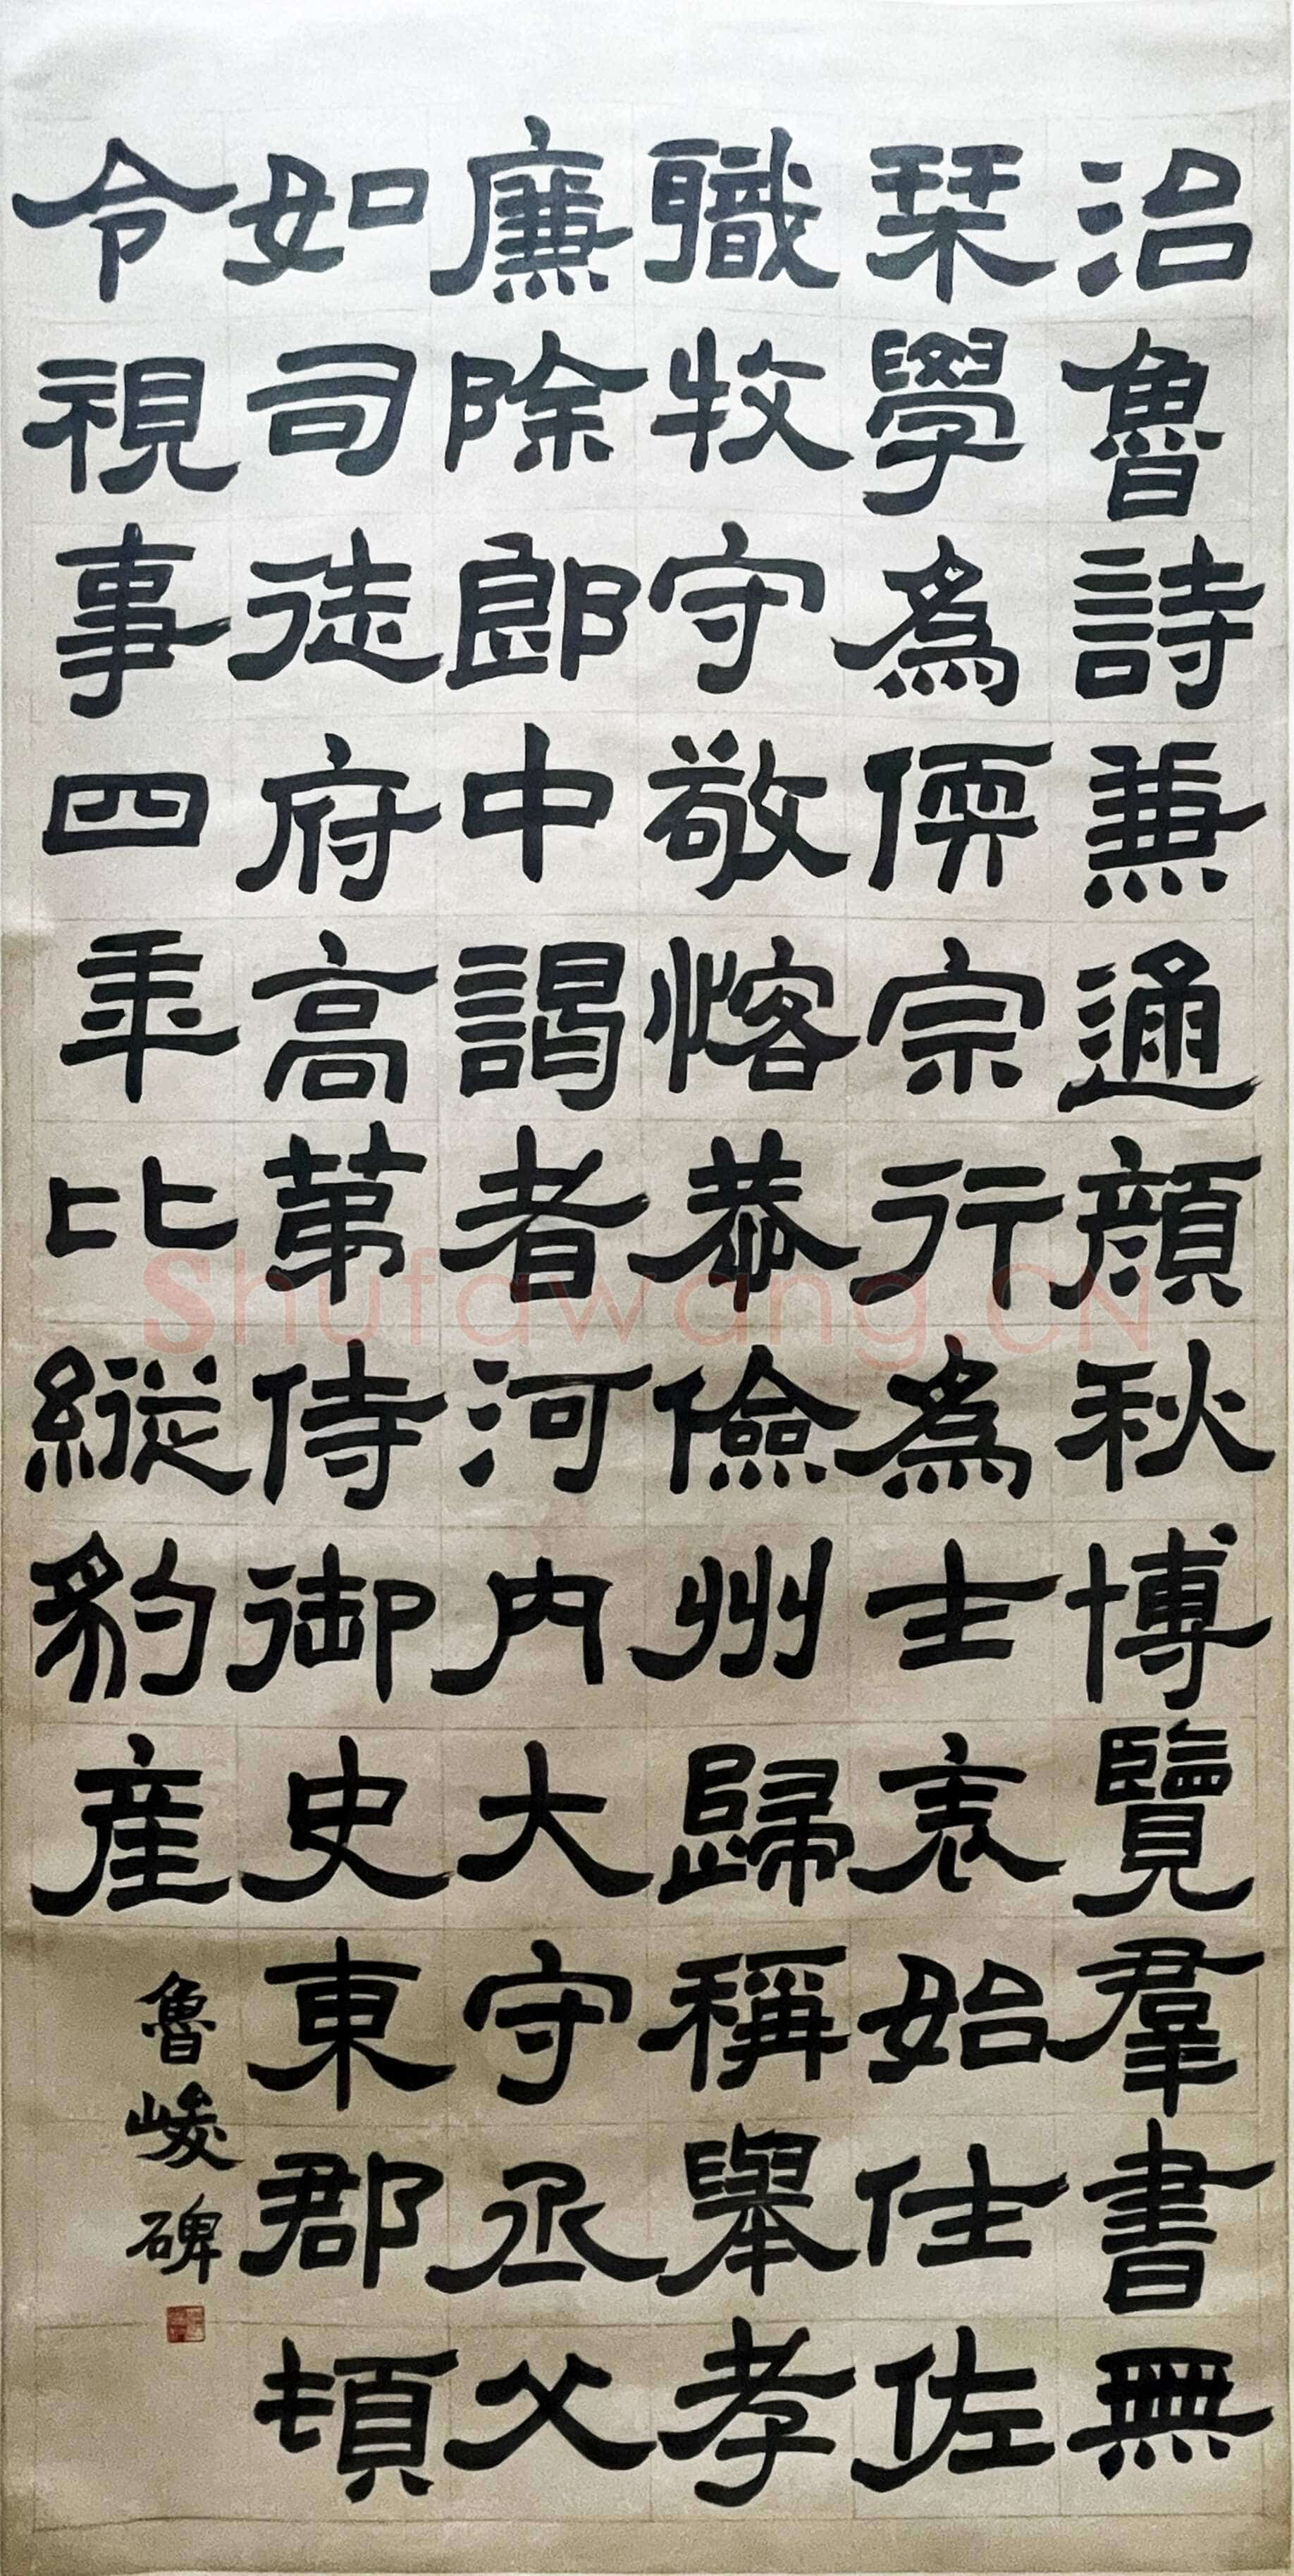 治魯詩兼通顏秋博覽羣書無
栞學為偄宗行為士表始仕佐
職牧守敬愘恭儉州歸稱舉孝
廉除郎中謁者河內大守丞父
如司徒府高第侍御史東郡頓
令視事四年比縱豹產
魯峻碑
Shufawang.CN